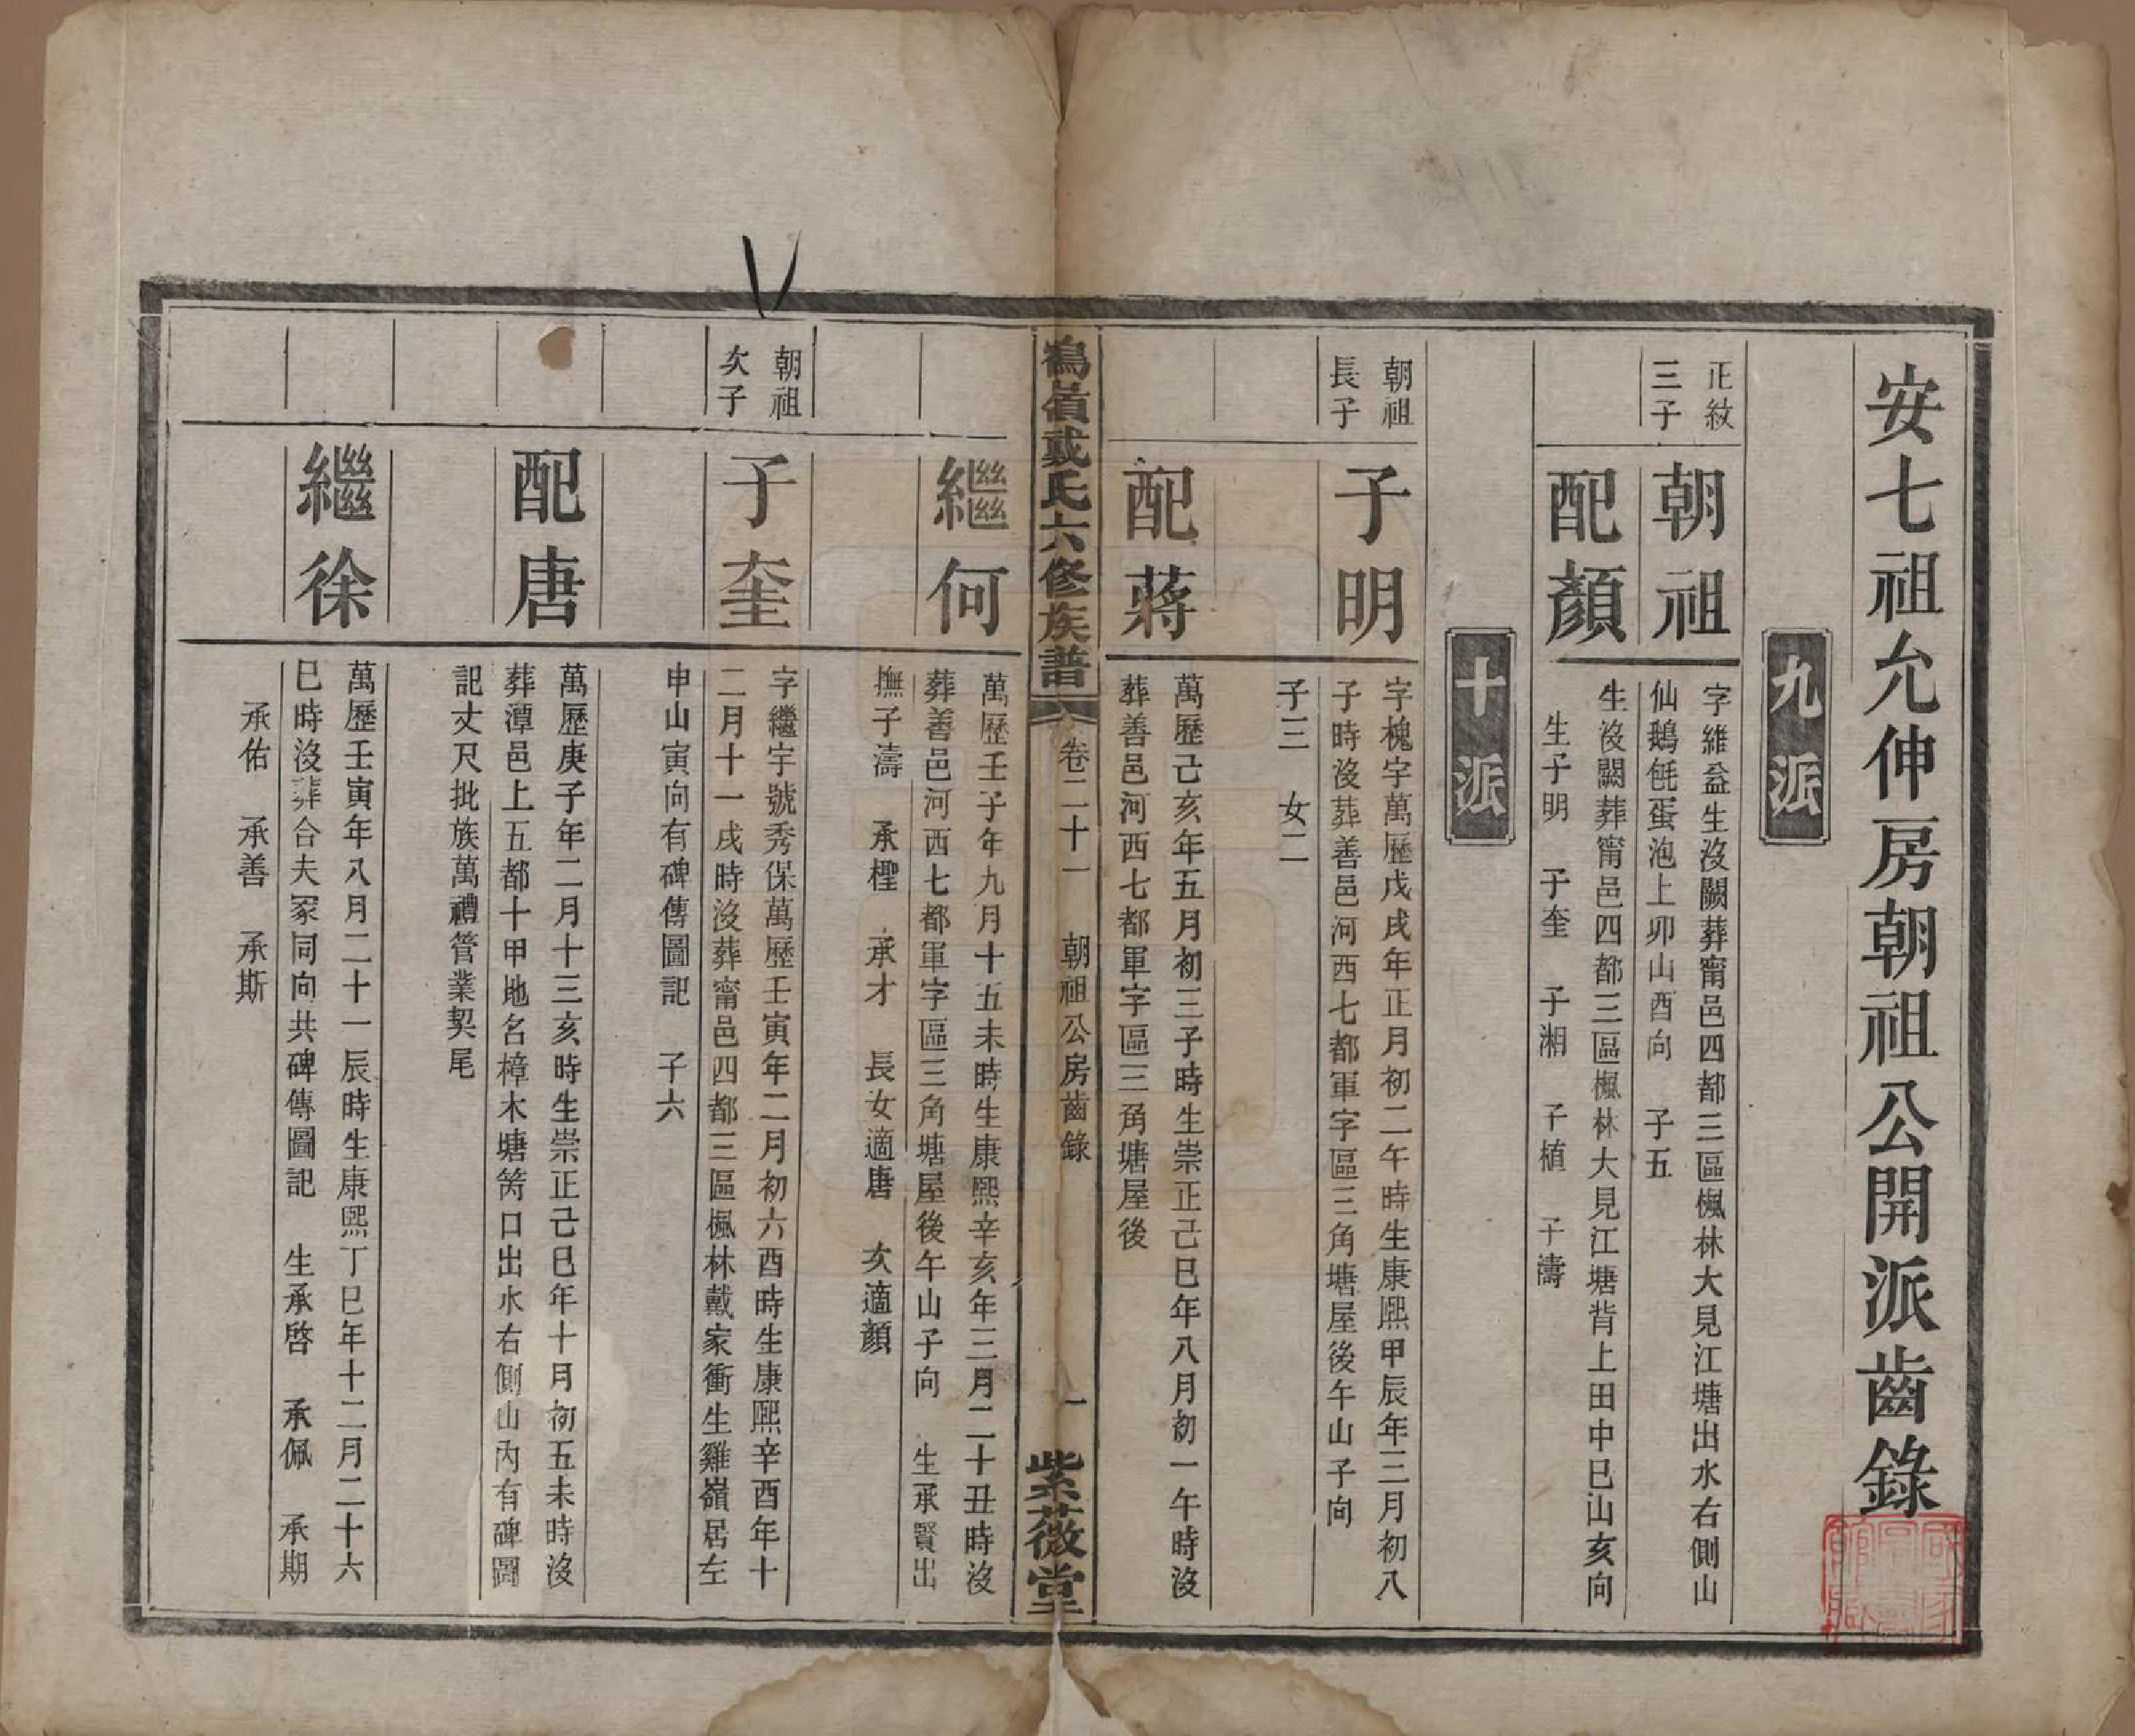 安七祖允伸房朝祖公開派齒錄
九派
正紋
三子
朝祖
字維益生沒闕葬甯邑四都三區楓林大見江塘出水右側山
仙鵝毻蛋泡上卯山酉向　子五
配顏
生沒闕葬甯邑四都三區楓林大見江塘背上田中巳山亥向
生子明　子奎　子湘　子植　子濤
十派
朝祖
長子
子明
字槐宇萬歷戊戌年正月初二午時生康熙甲辰年三月初八
子時沒葬善邑河西七都軍字區三角塘屋後午山子向
子三　女二
配蔣
萬歷己亥年五月初三子時生崇正己巳年八月初一午時沒
葬善邑河西七都軍字區三角塘屋後
鶴嶺戴氏六修族譜
卷二十一　朝祖公房齒錄
一
紫薇堂
繼何
萬歷壬子年九月十五未時生康熙辛亥年三月二十丑時沒
葬善邑河西七都軍字區三角塘屋後午山子向　生承賢出
撫子濤　承檉　承才　長女適唐　次適顏
朝祖
次子
子奎
字繼宇號秀保萬歷壬寅年二月初六酉時生康熙辛酉年十
二月十一戌時沒葬甯邑四都三區楓林戴家衝生雞嶺居左
申山寅向有碑傳圖記　子六
配唐
萬歷庚子年二月十三亥時生崇正己巳年十月初五未時沒
葬潭邑上五都十甲地名樟木塘笏口出水右側山內有碑圖
記丈尺批族萬禮管業契尾
繼徐
萬歷壬寅年八月二十一辰時生康熙丁巳年十二月二十六
巳時沒葬合夫冢同向共碑傳圖記　生承啓　承佩　承期
承佑　承善　承斯